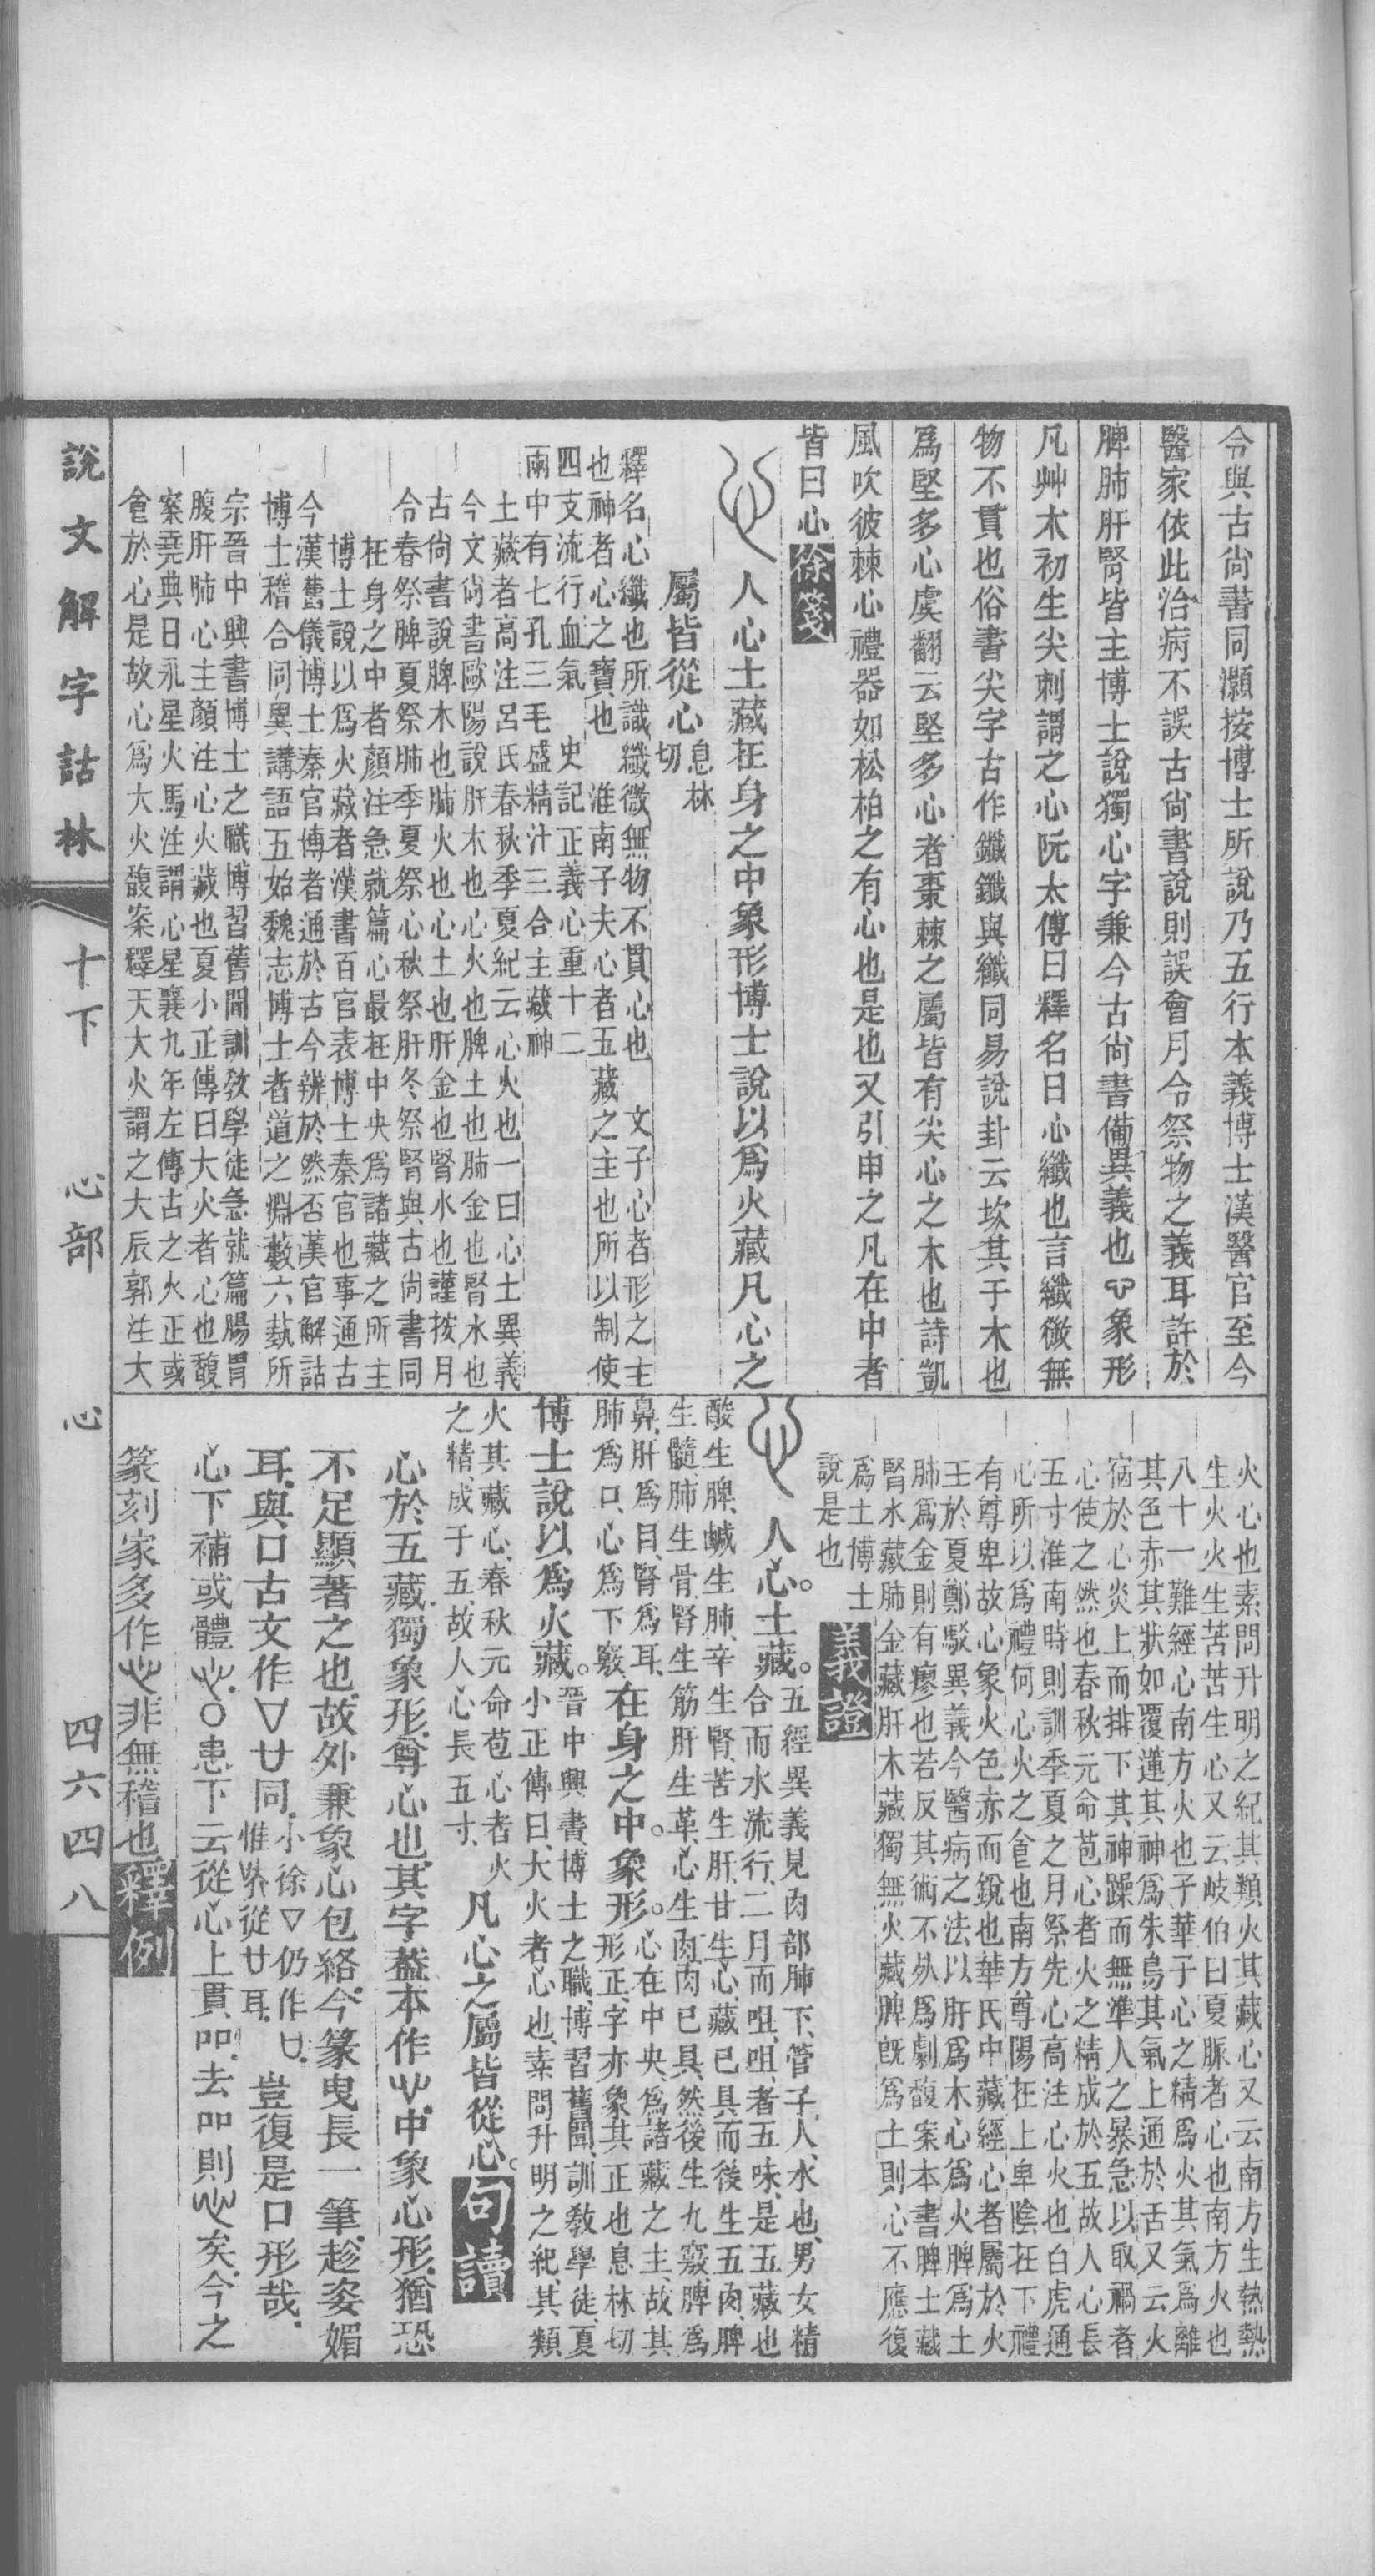 令與古尙書同灝按博士所說乃五行本義博士漢醫官至今
醫家依此治病不誤古尙書說則誤會月令祭物之義耳許於
脾肺肝腎皆主博士說獨心字兼今古尙書備異義也 象形
凡艸木初生尖刺謂之心阮太傅曰釋名曰心纖也言纖微無
物不貫也俗書尖字古作鑯鑯與纖同易說卦云坎其于木也
爲堅多心虞翻云堅多心者棗棘之屬皆有尖心之木也詩凱
風吹彼棘心禮器如松柏之有心也是也又引申之凡在中者
皆曰心徐箋
人心土藏在身之中象形博士說以爲火藏凡心之
屬皆從心息林切
釋名心纖也所識纖微無物不貫心也 文子心者形之主
也神者心之寶也 淮南子夫心者五藏之主也所以制使
四支流行血氣 史記正義心重十二
兩中有七孔三毛盛精汁三合主藏神
土藏者高注呂氏春秋季夏紀云心火也一曰心土異義
今文尙書歐陽說肝木也心火也脾土也肺金也腎水也
古尙書說脾木也肺火也心土也肝金也腎水也謹按月
令春祭脾夏祭肺季夏祭心秋祭肝冬祭腎與古尙書同
在身之中者顏注急就篇心最在中央爲諸藏之所主
博士說以爲火藏者漢書百官表博士秦官也事通古
今漢舊儀博士秦官博者通於古今辨於然否漢官解詁
博士稽合同異講語五始魏志博士者道之淵藪六藝所
宗晉中興書博士之職博習舊聞訓敎學徒急就篇腸胃
腹肝肺心主顏注心火藏也夏小正傳曰大火者心也馥
案堯典日永星火馬注謂心星襄九年左傳古之火正或
食於心是故心爲大火馥案釋天大火謂之大辰郭注大
火心也素問升明之紀其類火其藏心又云南方生熱熱
生火火生苦苦生心又云岐伯曰夏脈者心也南方火也
八十一難經心南方火也子華子心之精爲火其氣爲離
其色赤其狀如覆蓮其神爲朱鳥其氣上通於舌又云火
病於心炎上而排下其神躁而無準人之暴急以取禍者
心使之然也春秋元命苞心者火之精成於五故人心長
五寸淮南時則訓季夏之月祭先心高注心火也白虎通
心所以爲禮何心火之色也南方尊陽在上卑陰在下禮
有尊卑故心象火色赤而銳也華氏中藏經心者屬於火
王於夏鄭駁異義今醫病之法以肝爲木心爲火脾爲土
肺爲金則有瘳也若反其術不外爲劇馥案本書脾土藏
腎水藏肺金藏肝木藏獨無火藏脾旣爲土則心不應復
爲土博士
說是也
義證
人心。土藏。五經異義見肉部肺下、管子、人、水也、男女精
合而水流行、二月而咀、咀者五味、是五藏也
酸生脾、鹹生肺、辛生腎、苦生肝、甘生心、藏已具而後生五肉、脾
生髓、肺生骨、腎生筋、肝生革、心生肉、肉已具、然後生九竅、脾爲
鼻、肝爲目、腎爲耳、
肺爲口、心爲下竅、在身之中。象形。心在中央、爲諸藏之主、故其
形正、字亦象其正也、息林切
博士說以爲火藏。晉中興書、博士之職、博習舊聞、訓敎學徒、夏
小正傳曰、大火者心也、素問升明之紀、其類
火其藏心、春秋元命苞、心者火
之精、成于五、故人心長五寸、凡心之屬皆從心。句讀
心於五藏獨象形、尊心也、其字葢本作 中象心形、猶恐
不足顯著之也、故外兼象心包絡、今篆曳長一筆、趁姿媚
耳、與口古文作 廿同、小徐 仍作 、惟 從廿耳、豈復是口形哉、
心下補或體 、○患下云從心上貫吅、去吅則 矣、今之
篆刻家多作 非無稽也、釋例
說文解字詁林 十下 心部 心 四六四八